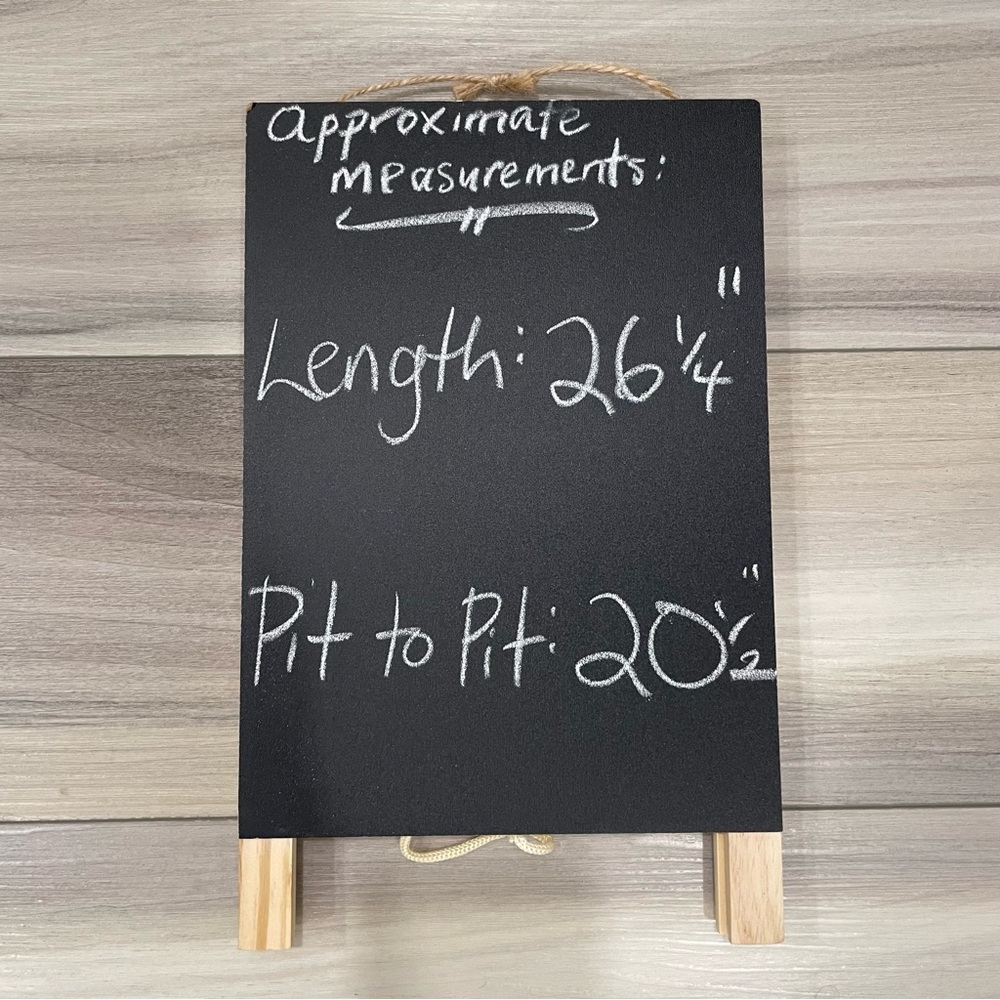 approximate
measurements:
Length: 26 1/4"
Pit to Pit: 20 1/2"